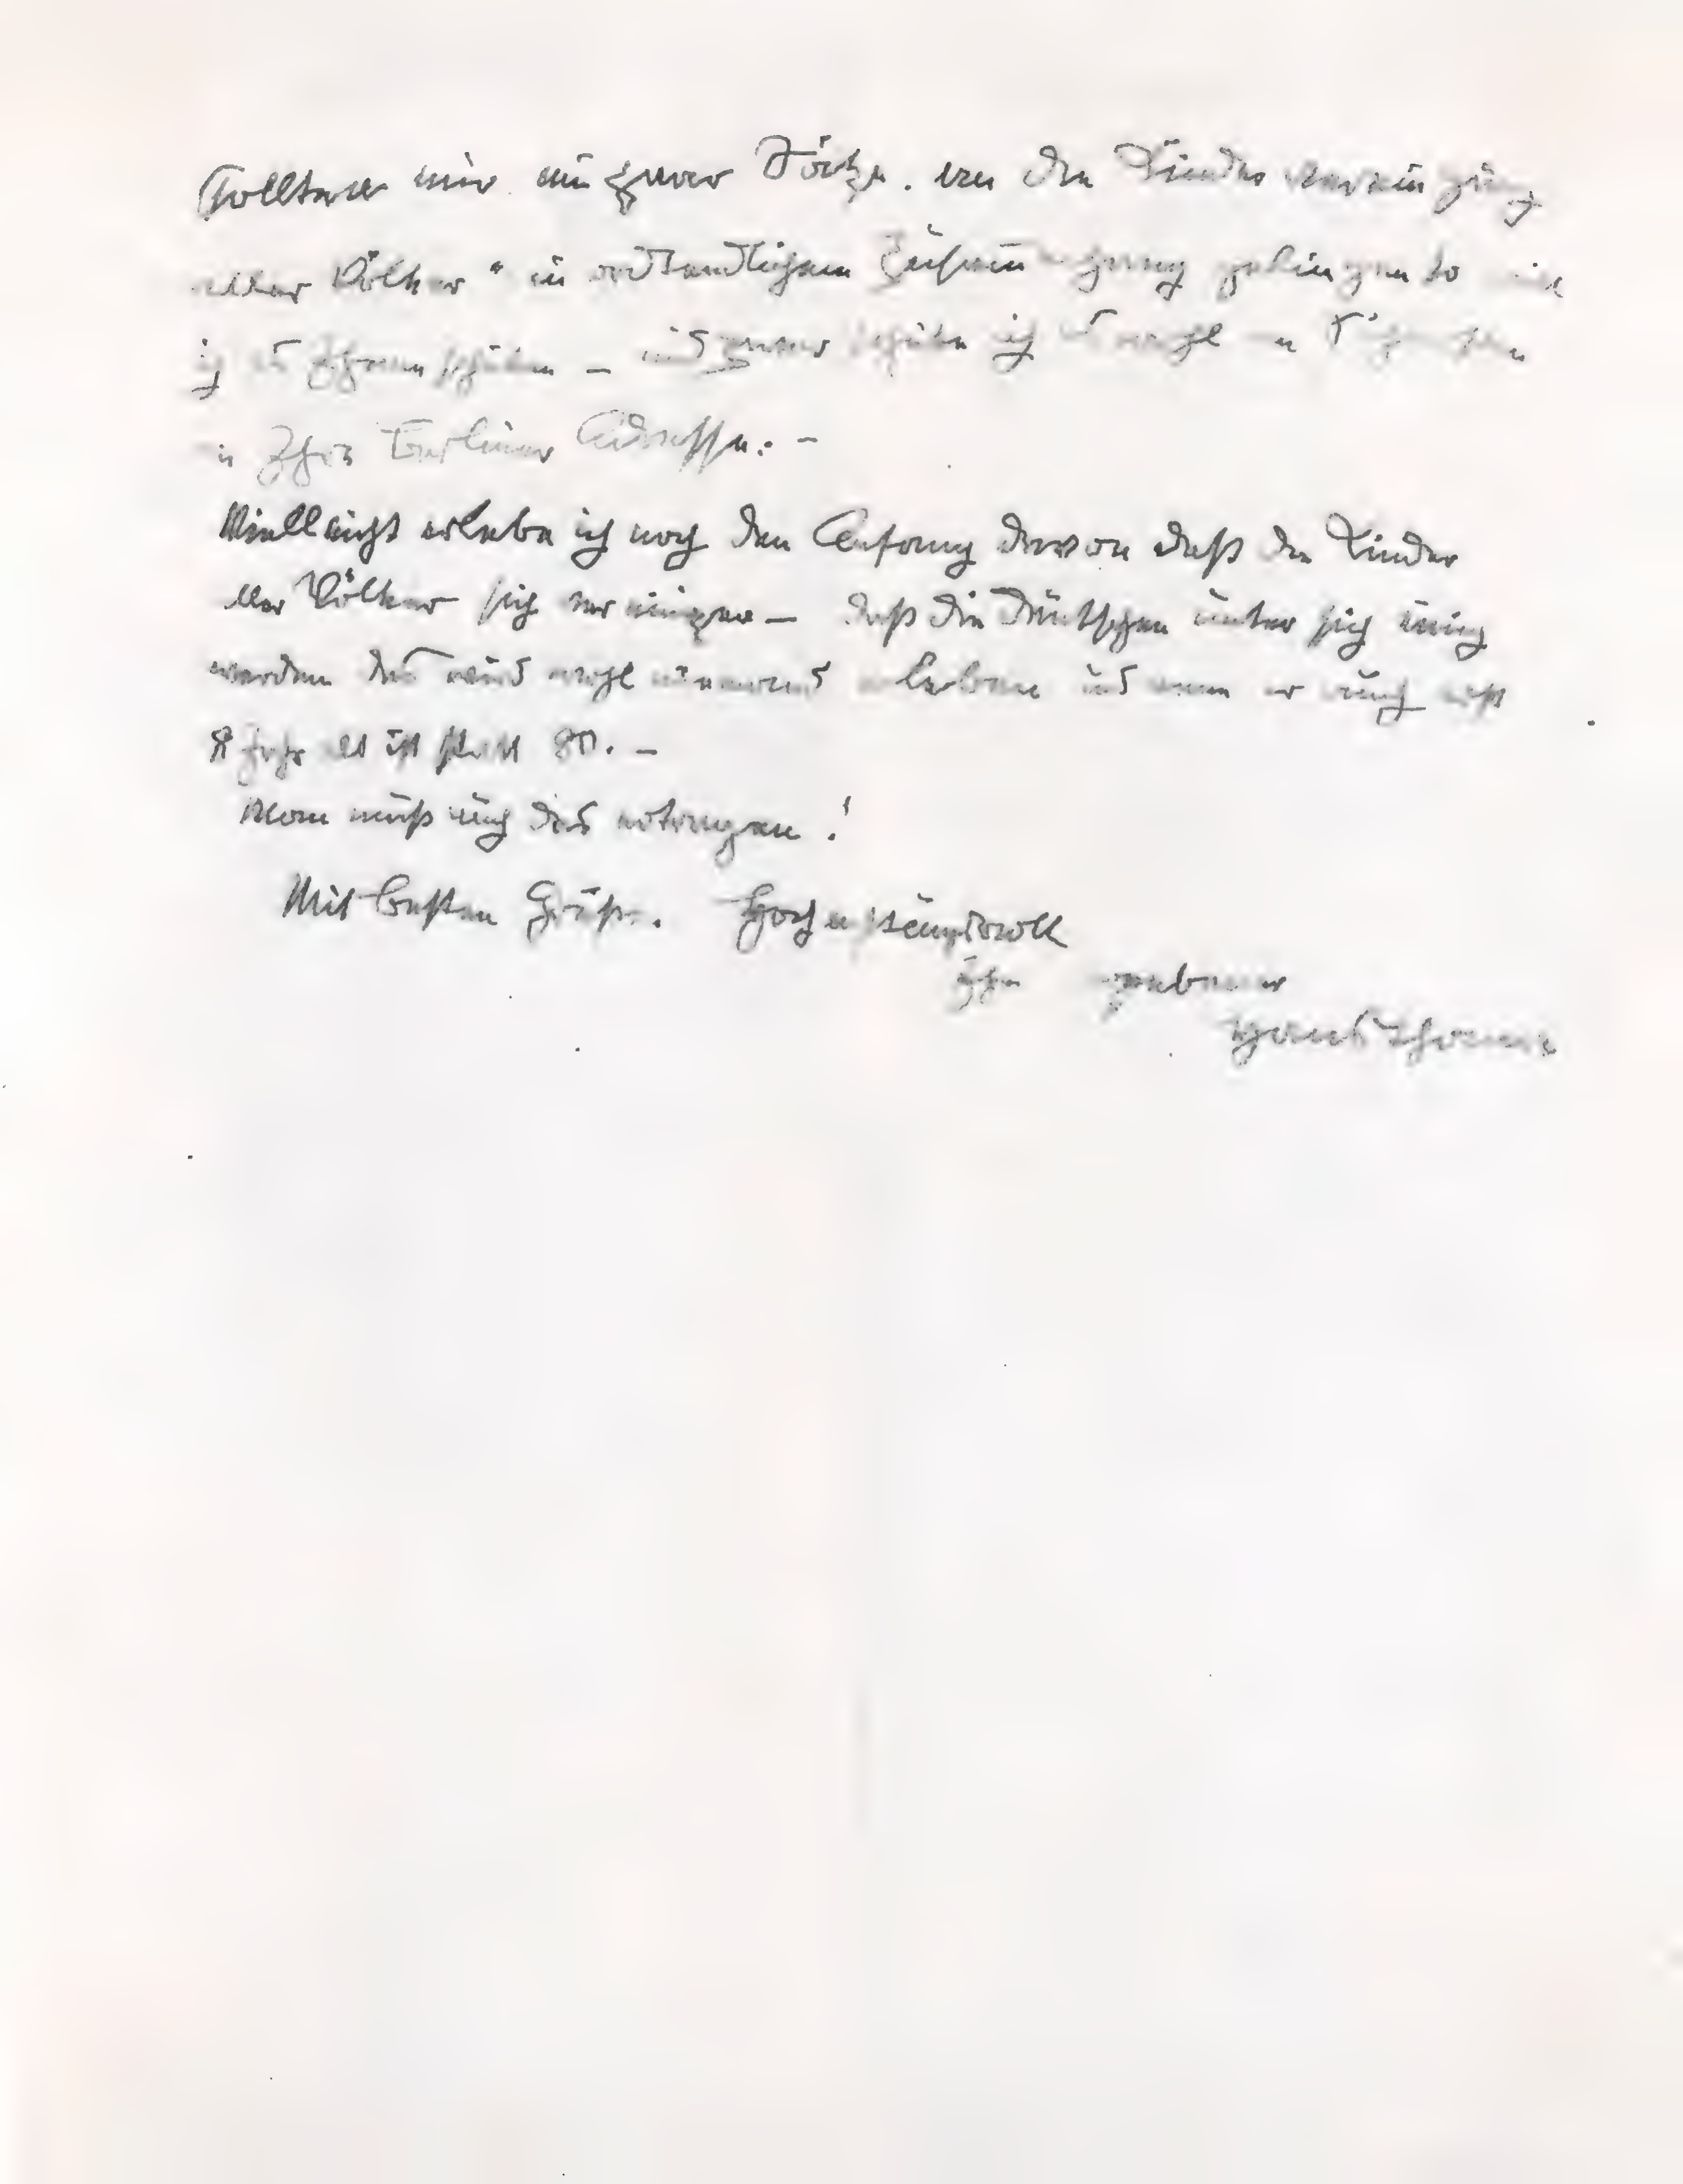 Sollten mir ein paar Sätze. an die Kinder vereinigung
aller Völker" in ordentlichem gelingen so will
ich es Ihnen schicken – und zwar schicke ich es wohl
in Ihre Berliner Adresse. –
Vielleicht erlebe ich noch den Anfang davon daß die Kinder
aller Völker sich vereinigen – daß die Deutschen unter sich einig
werden das wird wohl niemand erleben und wenn er auch erst
8 Jahr alt ist statt 80. –
Man muß auch das ertragen!
Mit besten Grüßen. Hochachtungsvoll
Ihr ergebener
Hans Thoma